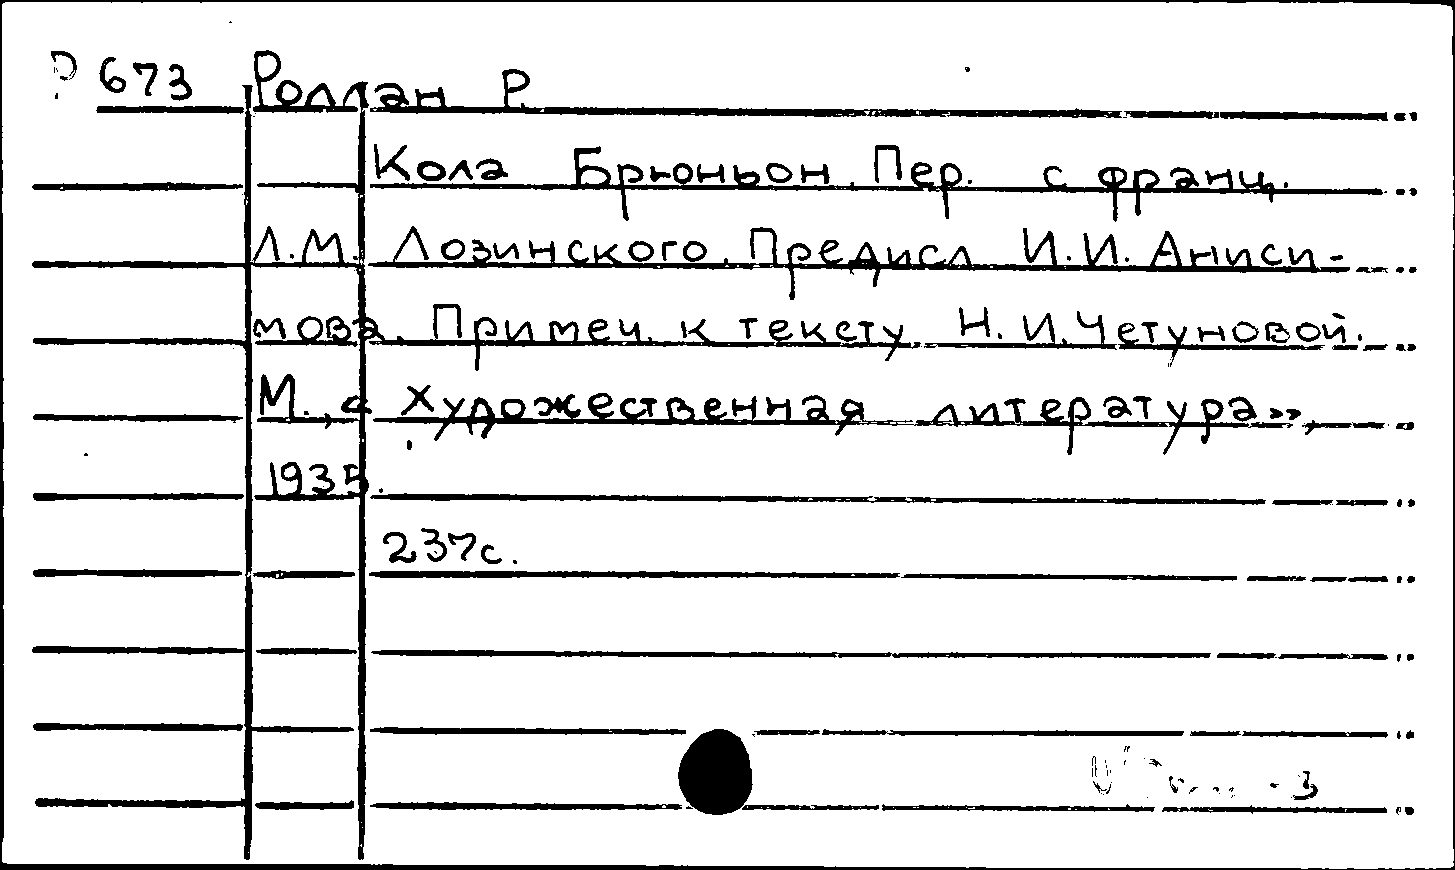 Р 673 Роллан Р.
Кола Брюньон. Пер. с франц.
Л.М. Лозинского. Предисл И.И. Аниси-
мова. Примеч. к тексту Н.И. Четуновой.
М., « Художественная литература»,
1935.
237с.